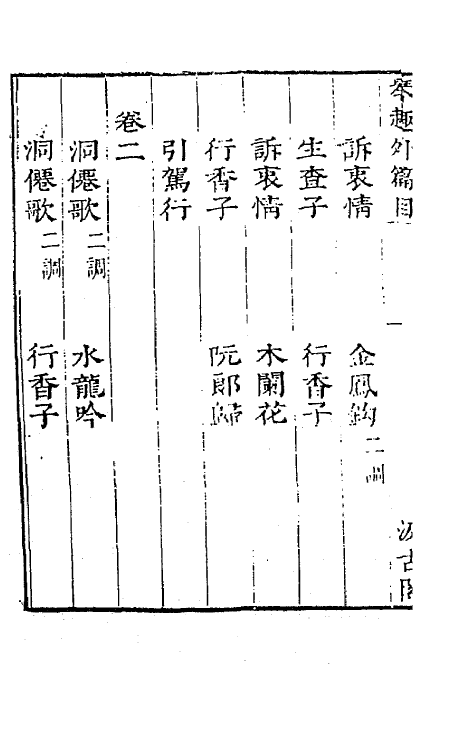 琴趣外篇目 一 汲古閣
訴衷情 金鳳鈎二調
生查子 行香子
訴衷情 木蘭花
行香子 阮郎歸
引駕行
卷二
洞僊歌二調 水龍吟
洞僊歌二調 行香子